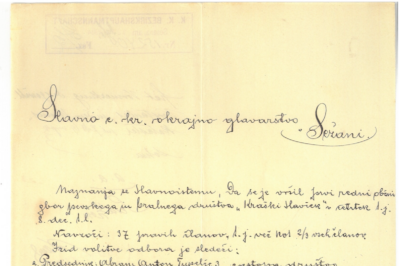 Slavno c. kr. okrajno glavarstvo
v Sežani.
Naznanja se Slavnoistemu, da se je vršil prvi redni občni
zbor pevskega in bralnega društva „Kraški Slavček" v četrtek t. j.
8. dec. t. l.
Navzoči: 37 pravih članov, t. j. več kot 2/3 vseh članov.
Izid volitve odbora je sledeči:
Predsednik: Abram Anton